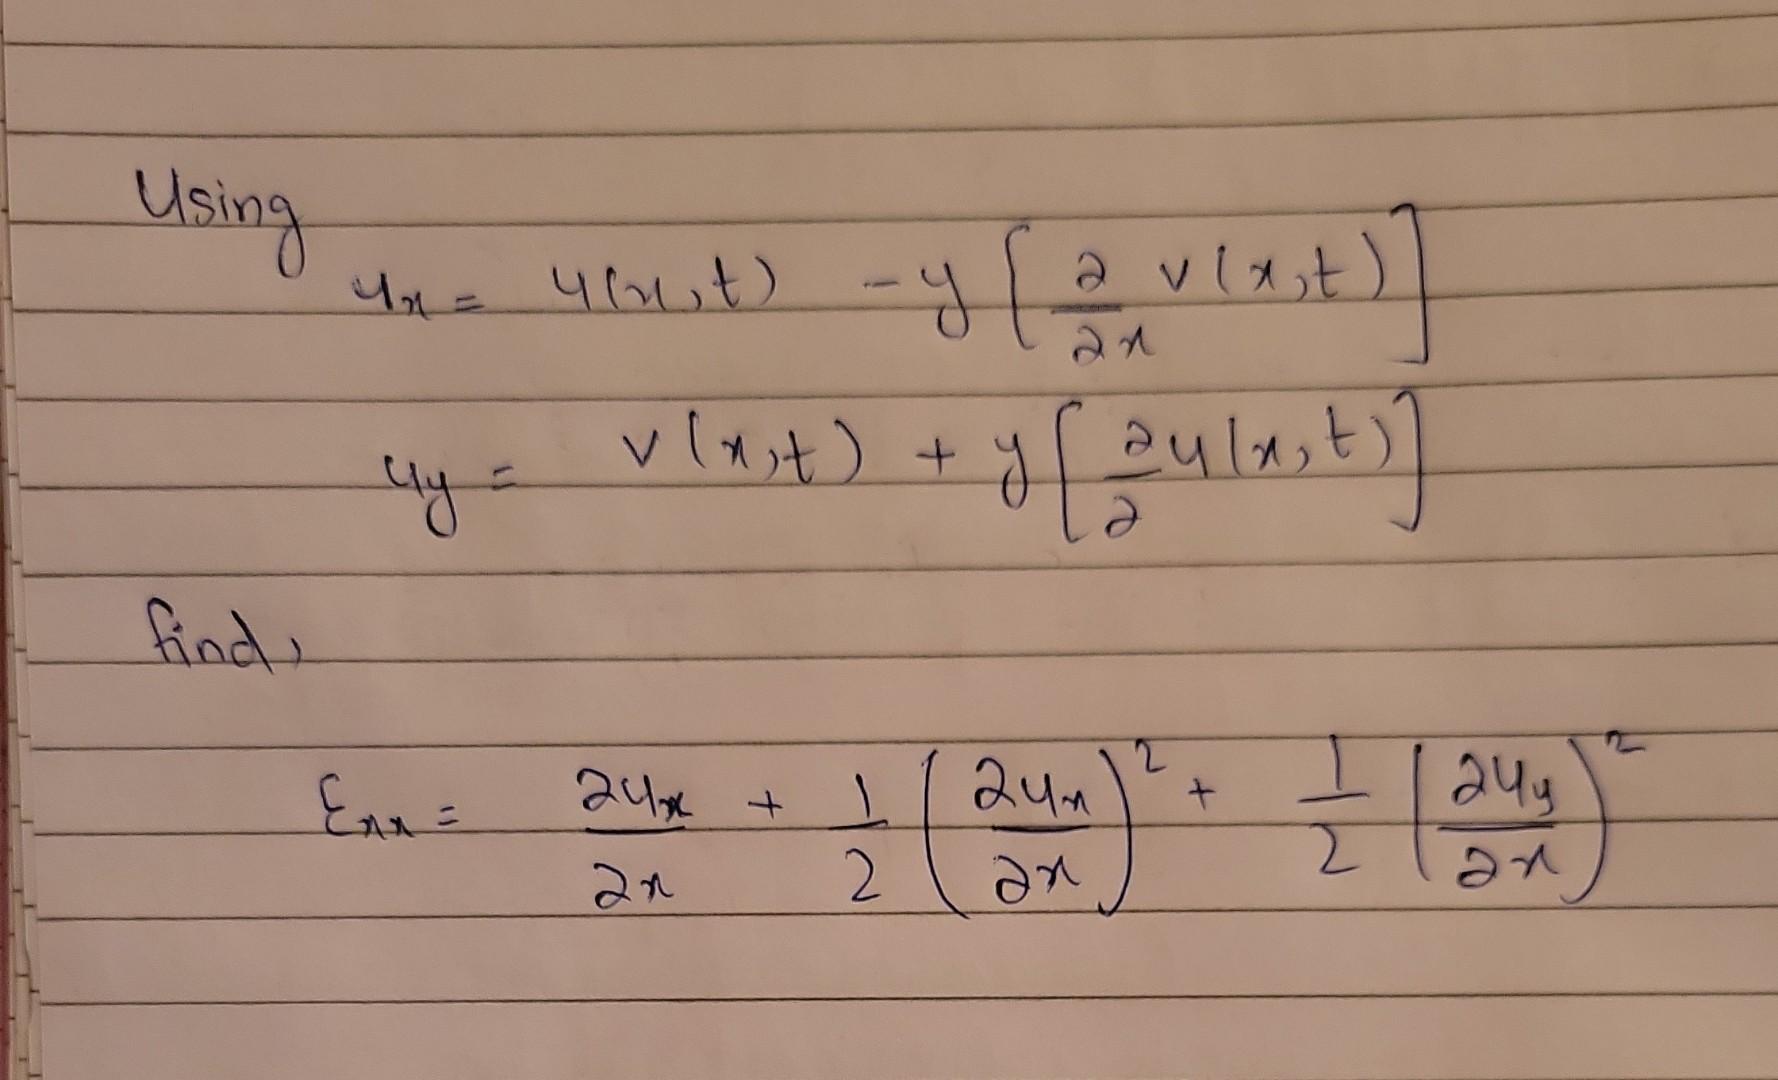 Using
u_x = u(x,t) - y [ ∂/∂x v(x,t) ]
u_y = v(x,t) + y [ ∂/∂ u(x,t) ]
find,
ε_xx = ∂u_x/∂x + 1/2 (∂u_x/∂x)^2 + 1/2 (∂u_y/∂x)^2